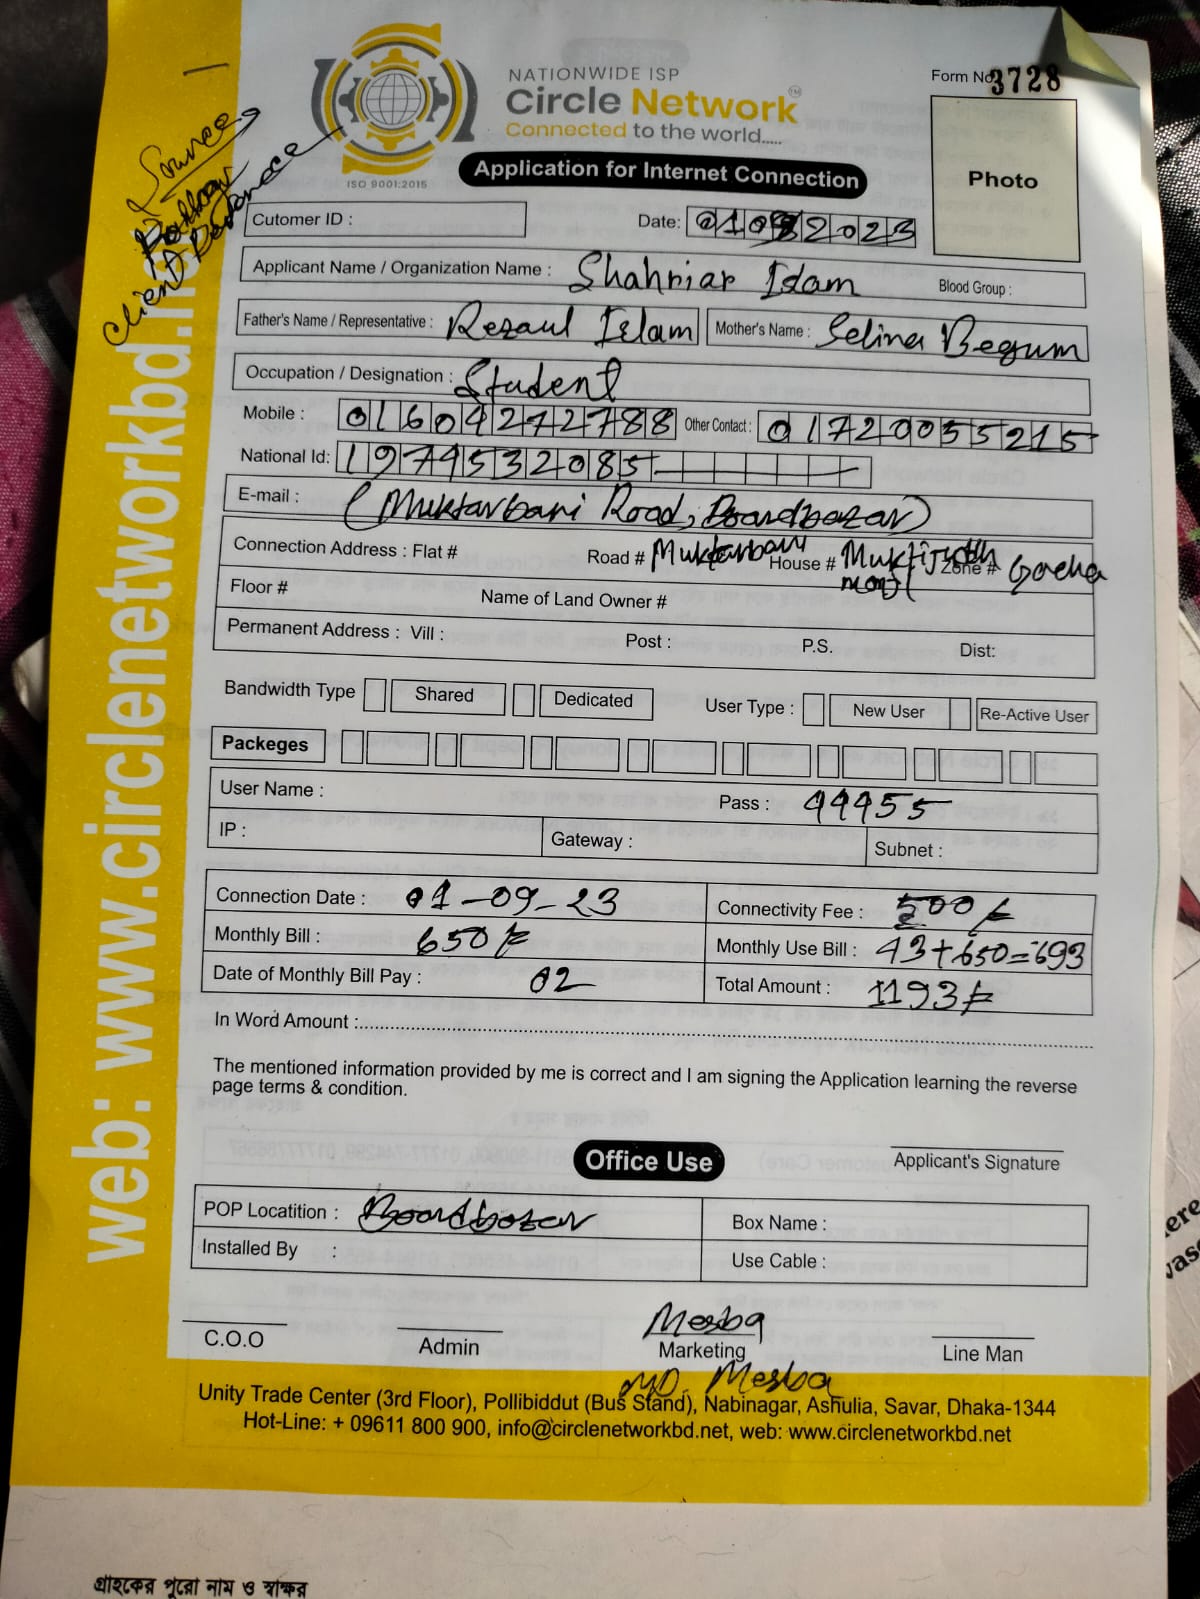 NATIONWIDE ISP
Circle Network™
Connected to the world.....
ISO 9001:2015
Application for Internet Connection
Form No 3728
Photo
Source
Client
web: www.circlenetworkbd.ne
Cutomer ID :
Date: 01092023
Applicant Name / Organization Name : Shahriar Islam Blood Group :
Father's Name / Representative : Rezaul Islam Mother's Name : Selina Begum
Occupation / Designation : Student
Mobile : 01604272788 Other Contact : 01720055215
National Id: 1979532085
E-mail : (Muktarbari Road, Boardbazar)
Connection Address : Flat # Road # Muktarbari House # Zone # Gacha
Floor # Name of Land Owner #
Permanent Address : Vill : Post : P.S. Dist:
Bandwidth Type Shared Dedicated User Type : New User Re-Active User
Packeges
User Name : Pass : 44455
IP : Gateway : Subnet :
Connection Date : 01-09-23 Connectivity Fee : 500/-
Monthly Bill : 650/- Monthly Use Bill : 43+650=693
Date of Monthly Bill Pay : 02 Total Amount : 1193/-
In Word Amount :
The mentioned information provided by me is correct and I am signing the Application learning the reverse
page terms & condition.
Applicant's Signature
Office Use
POP Locatition : Boardbazar Box Name :
Installed By : Use Cable :
Mesba
C.O.O Admin Marketing Line Man
MD. Mesba
Unity Trade Center (3rd Floor), Pollibiddut (Bus Stand), Nabinagar, Ashulia, Savar, Dhaka-1344
Hot-Line: + 09611 800 900, info@circlenetworkbd.net, web: www.circlenetworkbd.net
গ্রাহকের পুরো নাম ও স্বাক্ষর